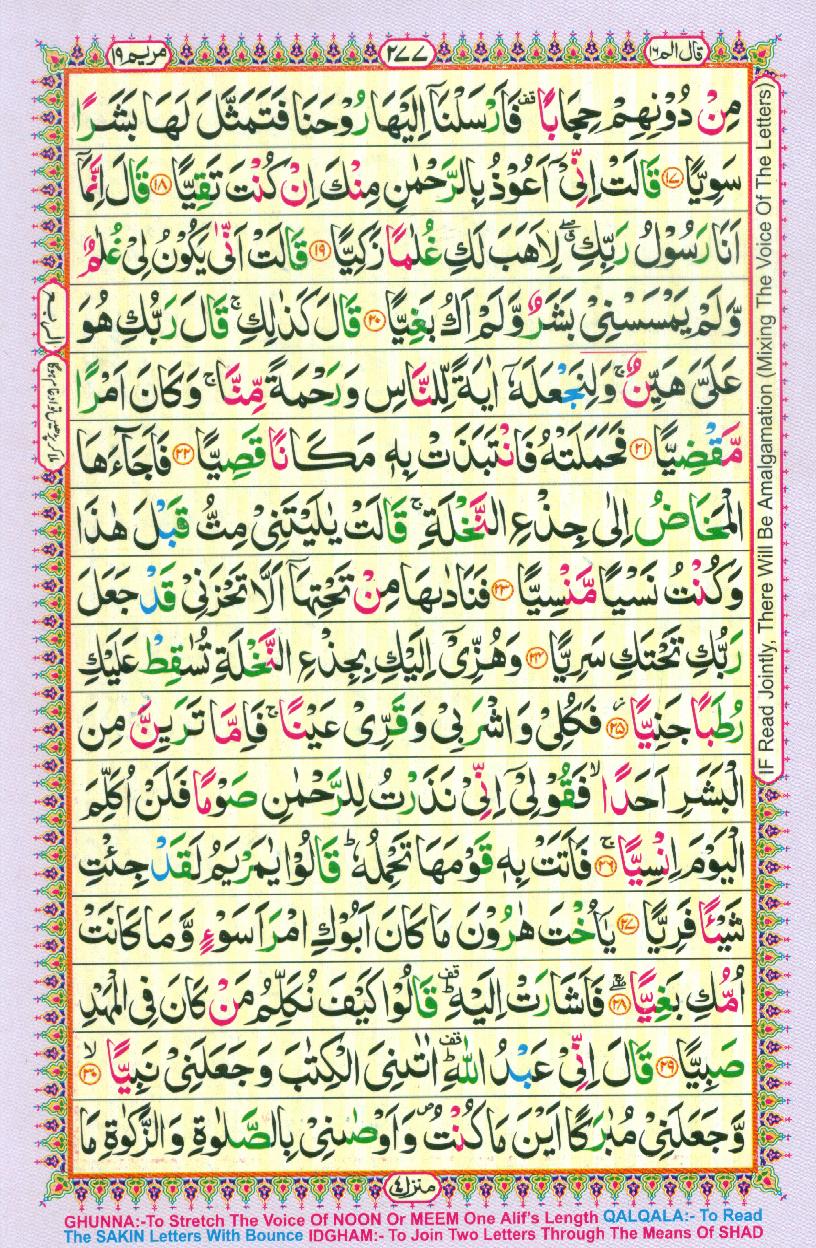 قال الم ١٦
٢٧٧
مريم ١٩
مِنْ دُوْنِهِمْ حِجَابًا ۪ۗ فَاَرْسَلْنَاۤ اِلَيْهَا رُوْحَنَا فَتَمَثَّلَ لَهَا بَشَرًا
سَوِيًّا ۝۱۷ قَالَتْ اِنِّىْۤ اَعُوْذُ بِالرَّحْمٰنِ مِنْكَ اِنْ كُنْتَ تَقِيًّا ۝۱۸ قَالَ اِنَّمَاۤ
اَنَا رَسُوْلُ رَبِّكِ ۖۗ لِاَهَبَ لَكِ غُلٰمًا زَكِيًّا ۝۱۹ قَالَتْ اَنّٰى يَكُوْنُ لِىْ غُلٰمٌ
وَّلَمْ يَمْسَسْنِىْ بَشَرٌ وَّلَمْ اَكُ بَغِيًّا ۝۲۰ قَالَ كَذٰلِكِ ۚ قَالَ رَبُّكِ هُوَ
عَلَىَّ هَيِّنٌ ۚ وَلِنَجْعَلَهٗۤ اٰيَةً لِّلنَّاسِ وَرَحْمَةً مِّنَّا ۚ وَكَانَ اَمْرًا
مَّقْضِيًّا ۝۲۱ فَحَمَلَتْهُ فَانْتَبَذَتْ بِهٖ مَكَانًا قَصِيًّا ۝۲۲ فَاَجَآءَهَا
الْمَخَاضُ اِلٰى جِذْعِ النَّخْلَةِ ۚ قَالَتْ يٰلَيْتَنِىْ مِتُّ قَبْلَ هٰذَا
وَكُنْتُ نَسْيًا مَّنْسِيًّا ۝۲۳ فَنَادٰىهَا مِنْ تَحْتِهَاۤ اَلَّا تَحْزَنِىْ قَدْ جَعَلَ
رَبُّكِ تَحْتَكِ سَرِيًّا ۝۲۴ وَهُزِّىْۤ اِلَيْكِ بِجِذْعِ النَّخْلَةِ تُسٰقِطْ عَلَيْكِ
رُطَبًا جَنِيًّا ۝۲۵ فَكُلِىْ وَاشْرَبِىْ وَقَرِّىْ عَيْنًا ۚ فَاِمَّا تَرَيِنَّ مِنَ
الْبَشَرِ اَحَدًا ۙ فَقُوْلِىْۤ اِنِّىْ نَذَرْتُ لِلرَّحْمٰنِ صَوْمًا فَلَنْ اُكَلِّمَ
الْيَوْمَ اِنْسِيًّا ۝۲۶ۚ فَاَتَتْ بِهٖ قَوْمَهَا تَحْمِلُهٗ ؕ قَالُوْا يٰمَرْيَمُ لَقَدْ جِئْتِ
شَيْئًا فَرِيًّا ۝۲۷ يٰۤاُخْتَ هٰرُوْنَ مَا كَانَ اَبُوْكِ امْرَاَ سَوْءٍ وَّمَا كَانَتْ
اُمُّكِ بَغِيًّا ۝۲۸ فَاَشَارَتْ اِلَيْهِ ؕ قف قَالُوْا كَيْفَ نُكَلِّمُ مَنْ كَانَ فِى الْمَهْدِ
صَبِيًّا ۝۲۹ قَالَ اِنِّىْ عَبْدُ اللّٰهِ ؕ قف اٰتٰىنِىَ الْكِتٰبَ وَجَعَلَنِىْ نَبِيًّا ۝۳۰ۙ
وَّجَعَلَنِىْ مُبٰرَكًا اَيْنَ مَا كُنْتُ ۪ وَاَوْصٰىنِىْ بِالصَّلٰوةِ وَالزَّكٰوةِ مَا
منزل ٤
الربع
IF Read Jointly, There Will Be Amalgamation (Mixing The Voice Of The Letters)
GHUNNA:-To Stretch The Voice Of NOON Or MEEM One Alif's Length QALQALA:- To Read
The SAKIN Letters With Bounce IDGHAM:- To Join Two Letters Through The Means Of SHAD